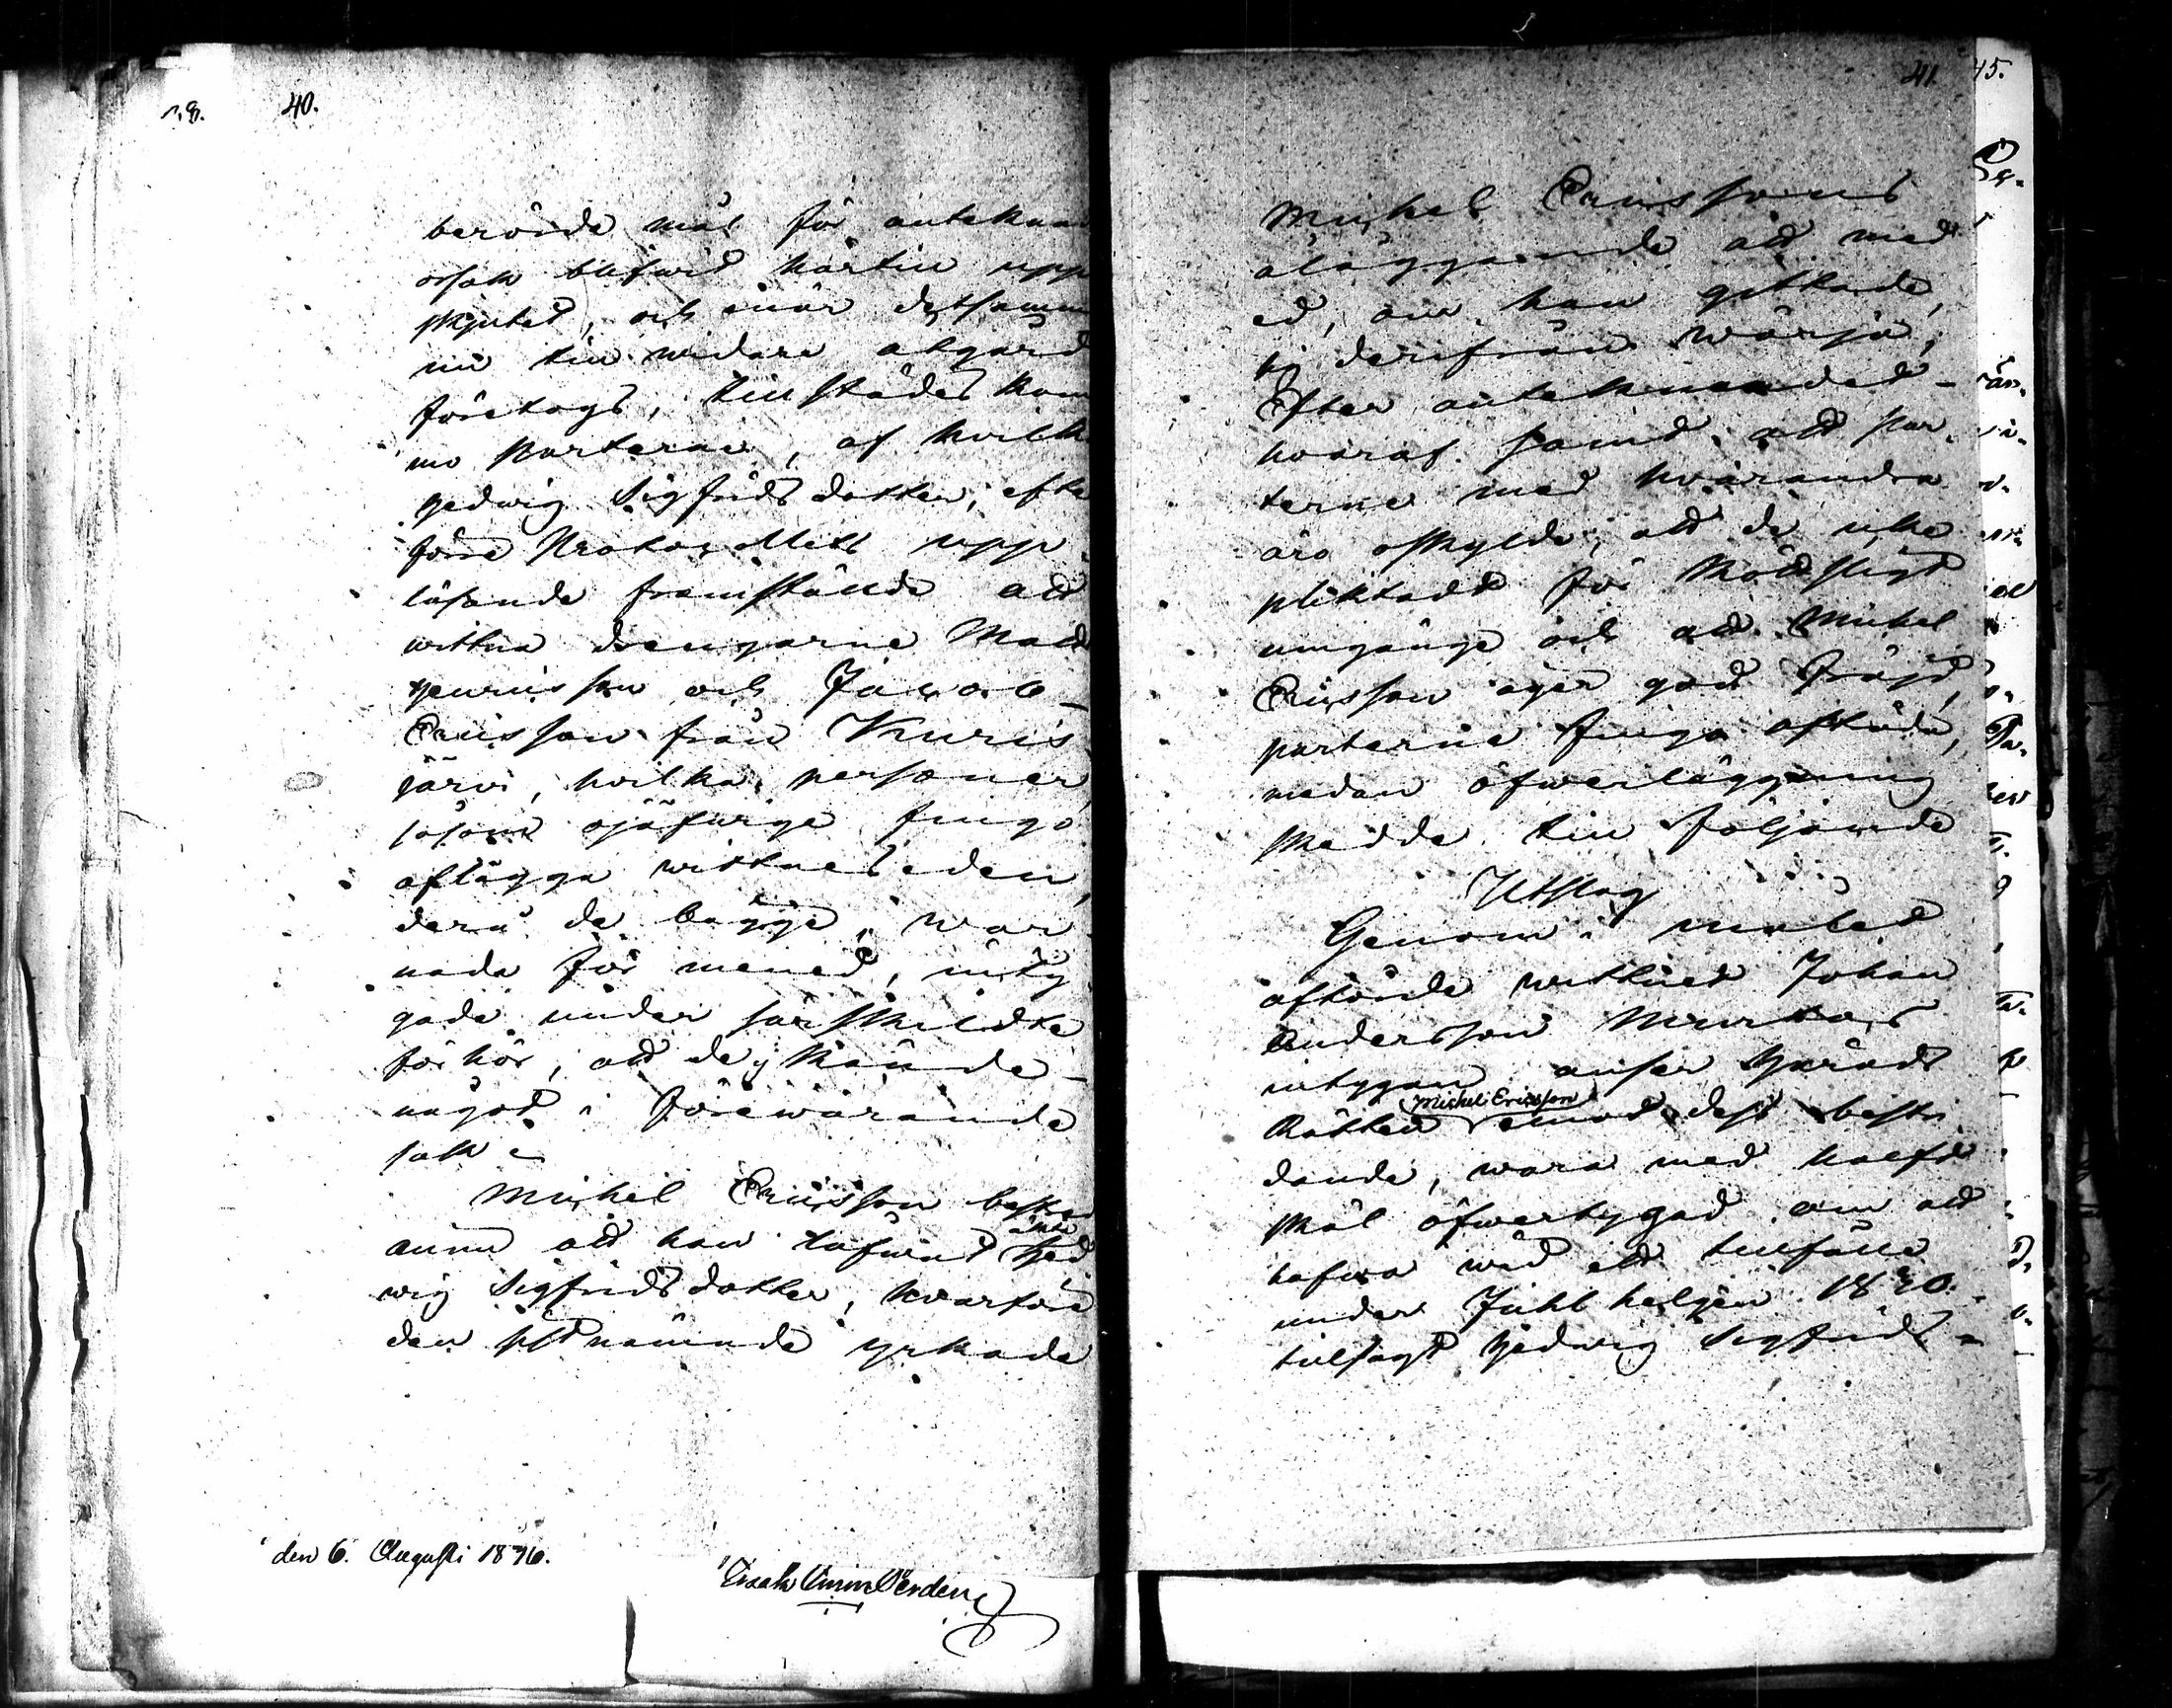 40.
berörde mål för antekna
orsak blifwit härtill upp
skjutet, och enär detsamm
nu till widare åtgärd
företogs, tillstädes kom
mo parterne, af hvilk
Hedwig Sigfridsdotter, efte
förra Protocollets upp-
läsande framställde att
wittna drengarne Matts
Henricsson och Jacob
Ericsson från Kuris
järvi, hvilka personer,
såsom ojäfwige fingo
aflägga wittnes eden,
derå de bägge, war
nade för mened, intyg
gade under särskildte
förhör, att de ej kände
något i förewarande
sak.
Michel Ericsson bestre
ännu att han lofwat Hed
wig Sigfridsdotter, hvarföre
den sistnämnde yrkade
den 6. Augusti 1876.
41.
45.
Michel Ericssons
åläggande att med
ed, om han gittade,
sig derifrån wärja;
Efter antecknandet
hvaraf samt att par-
terne med hvarandra
äro oskylde, att de icke
pliktadt för köttsligt
umgänge och att Michel
Ericsson äger god fräjd,
parterne fingo afträda,
medan öfwerläggning
skedde till följande
Utslag
Genom i målet
afhörde wittnet Johan
Andersson
intygan anser Härads
Rätten Michel Ericsson emot dess bestri
dande, wara med halft
skäl öfwertygad om att
hafwa wid ett tillfälle
under Juhlhelgen 1830.
tillsagt Hedwig Sigfrids-